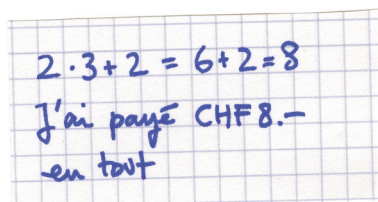 2·3+2 = 6+2=8
J'ai payé CHF 8.–
en tout